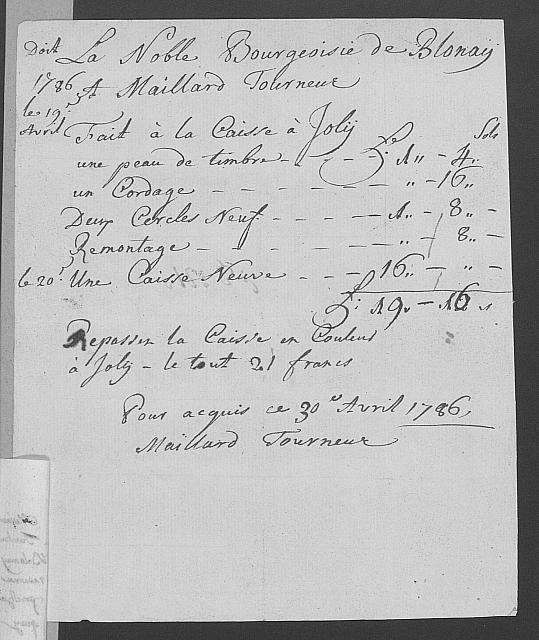 Doit La Noble Bourgeoisie de Blonay
1786 A Maillard Tourneur
le 19e
Avril Fait à la Caisse à Joly Sols
une peau de timbre - - - £: 1 ,, - 4 ,,
un Cordage - - - - - - ,, - 16 ,,
Deux Cercles Neuf - - - - 1 ,, - 8 ,, -
Remontage - - - - - - ,, - 8 ,, -
le 20e Une Caisse Neuve - - - 16 ,, - ,, -
£: 19 ,, - 16 s
Repasser la Caisse en Couleur ,,
à Joly - le tout 21 francs
Pour acquis ce 30e Avril 1786,
Maillard Tourneur